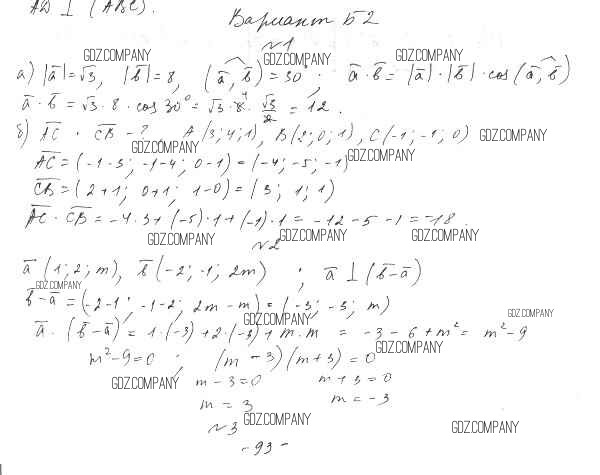 AD ⊥ (ABC).
Вариант Б2
GDZ.COMPANY
№1
GDZ.COMPANY GDZ.COMPANY
а) |a̅|=√3, |b̅|=8, (a̅, b̅)=30°; a̅·b̅=|a̅|·|b̅|·cos(a̅, b̅)
a̅·b̅=√3·8·cos30°=√3·8⁴·√3/2=12.
б) AC · CB - ? A(3;4;1), B(2;0;1), C(-1;-1;0) GDZ.COMPANY
GDZ.COMPANY
AC=(-1-3; -1-4; 0-1)=(-4;-5;-1) GDZ.COMPANY
CB=(2+1; 0+1; 1-0)=(3; 1; 1)
AC·CB=-4·3+(-5)·1+(-1)·1=-12-5-1=-18
GDZ.COMPANY GDZ.COMPANY GDZ.COMPANY
№2
a̅(1;2;m), b̅(-2;-1;2m); a̅⊥(b̅-a̅)
GDZ.COMPANY
b̅-a̅=(-2-1; -1-2; 2m-m)=(-3;-3;m)
GDZ.COMPANY GDZ.COMPANY
a̅·(b̅-a̅)=1·(-3)+2·(-3)+m·m = -3-6+m²= m²-9
GDZ.COMPANY
m²-9=0; (m-3)(m+3)=0
GDZ.COMPANY m-3=0 m+3=0
m=3 m=-3
№3 GDZ.COMPANY GDZ.COMPANY
-93-